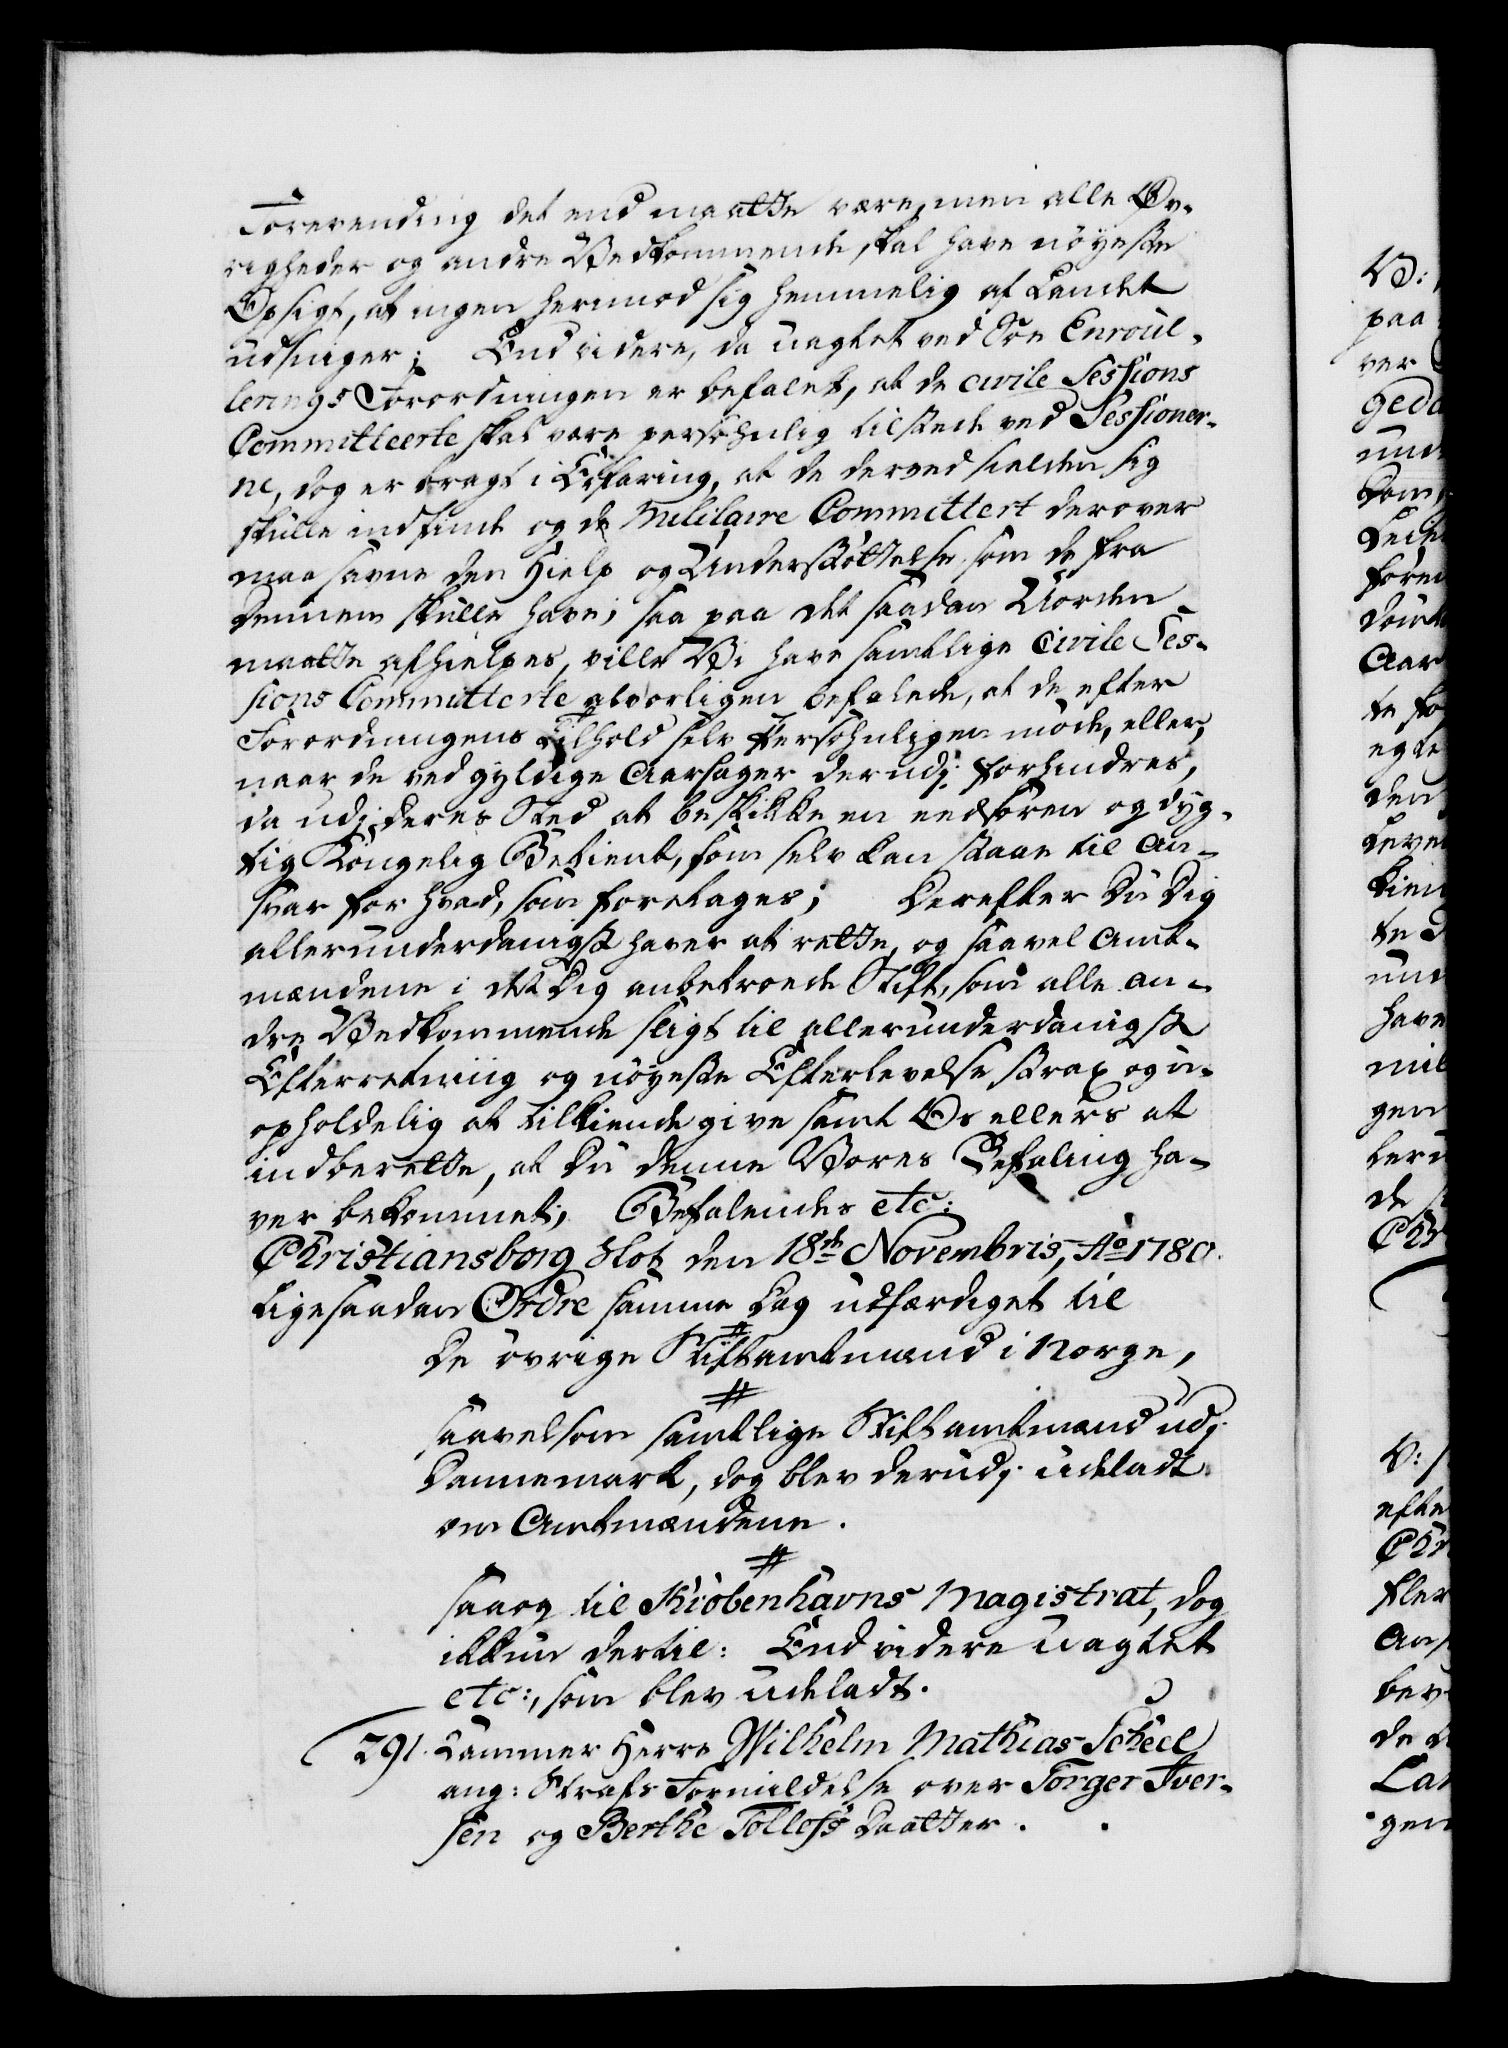 Forevending det end maatte være, men alle Øv-
righeder og andre Vedkommende skal have nöyeste
Opsigt, at ingen herimod sig hemmelig af Landet
udsniger; End videre, da uagtet ved Söe Enroul-
lerings Forordningen er befalet, at de civile Sessions
Committeerte skal være persohnlig tilstede ved Sessioner-
ne, dog er bragt i Erfaring, at de derved sielden sig
skulle indfinde og de Militaire Committert derover
maa savne den Hielp og Understöttelse som de fra
dennem skulle have; saa paa det saadan Uorden
maatte afhielpes, ville Vi have samtlige Civile Ses-
sions Committerte alvorligen befalede, at de efter
Forordningens Tilhold selv Persohnligen möde, eller,
naar de ved gyldige Aarsager derudj forhindres,
da udj deres Sted at beskikke en eedsvoren og dyg-
tig Kongelig Betient, som selv kan staae til An-
svar for hvad, som foretages; Derefter Du Dig
allerunderdanigst haver at rette, og saavel Amt-
mændene i det Dig anbetroede Stift, som alle an-
dre Vedkommende sligt til allerunderdanigst
Efterretning og nöyeste Efterlevelse strax og u-
opholdelig at tilkiende give samt Os ellers at
indberette, at Du denne Vores Befaling ha-
ver bekommet; Befalendes etc:
Christiansborg Slot den 18de Novembris, Ao 1780.
Ligesaadan Ordre samme Dag udfærdiget til
#
De övrige Stiftamtmænd i Norge,
#
saavelsom samtlige Stiftamtmænd udj
Dannemark, dog blev derudj udeladt
om Amtmændene.
#
saaog til Kiöbenhavns Magistrat, dog
ikkun dertil: End videre uagtet
etc:, som blev udeladt.
291. Cammer Herre Wilhelm Mathias Scheel
ang: Straffs Formildelse over Torger Iver-
sen og Berthe Tollefs Daatter.
V:
paa
ver
und
den
te
und
have
mil
gen
de
V:
efte
de
gen